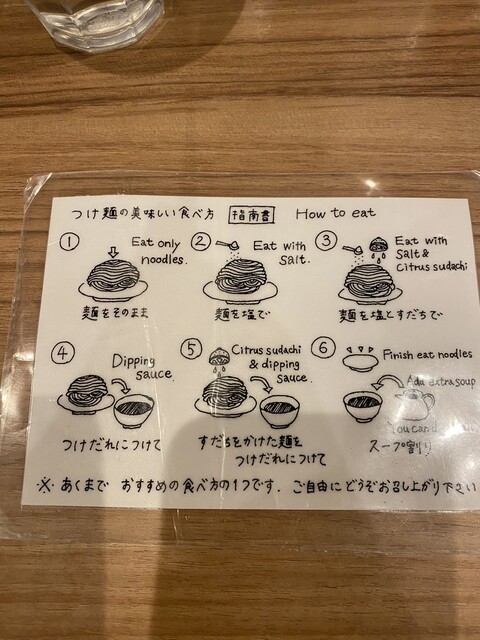 つけ麺の美味しい食べ方 指南書 How to eat
① Eat only
noodles.
麺をそのまま
② Eat with
salt.
麺を塩で
③ Eat with
Salt &
Citrus sudachi
麺を塩とすだちで
④ Dipping
sauce.
つけだれにつけて
⑤ Citrus sudachi
& dipping
sauce.
すだちをかけた麺を
つけだれにつけて
⑥ Finish eat noodles
Add extra soup
You can
スープ割り
※ あくまで おすすめの食べ方の1つです. ご自由にどうぞお召し上がり下さい